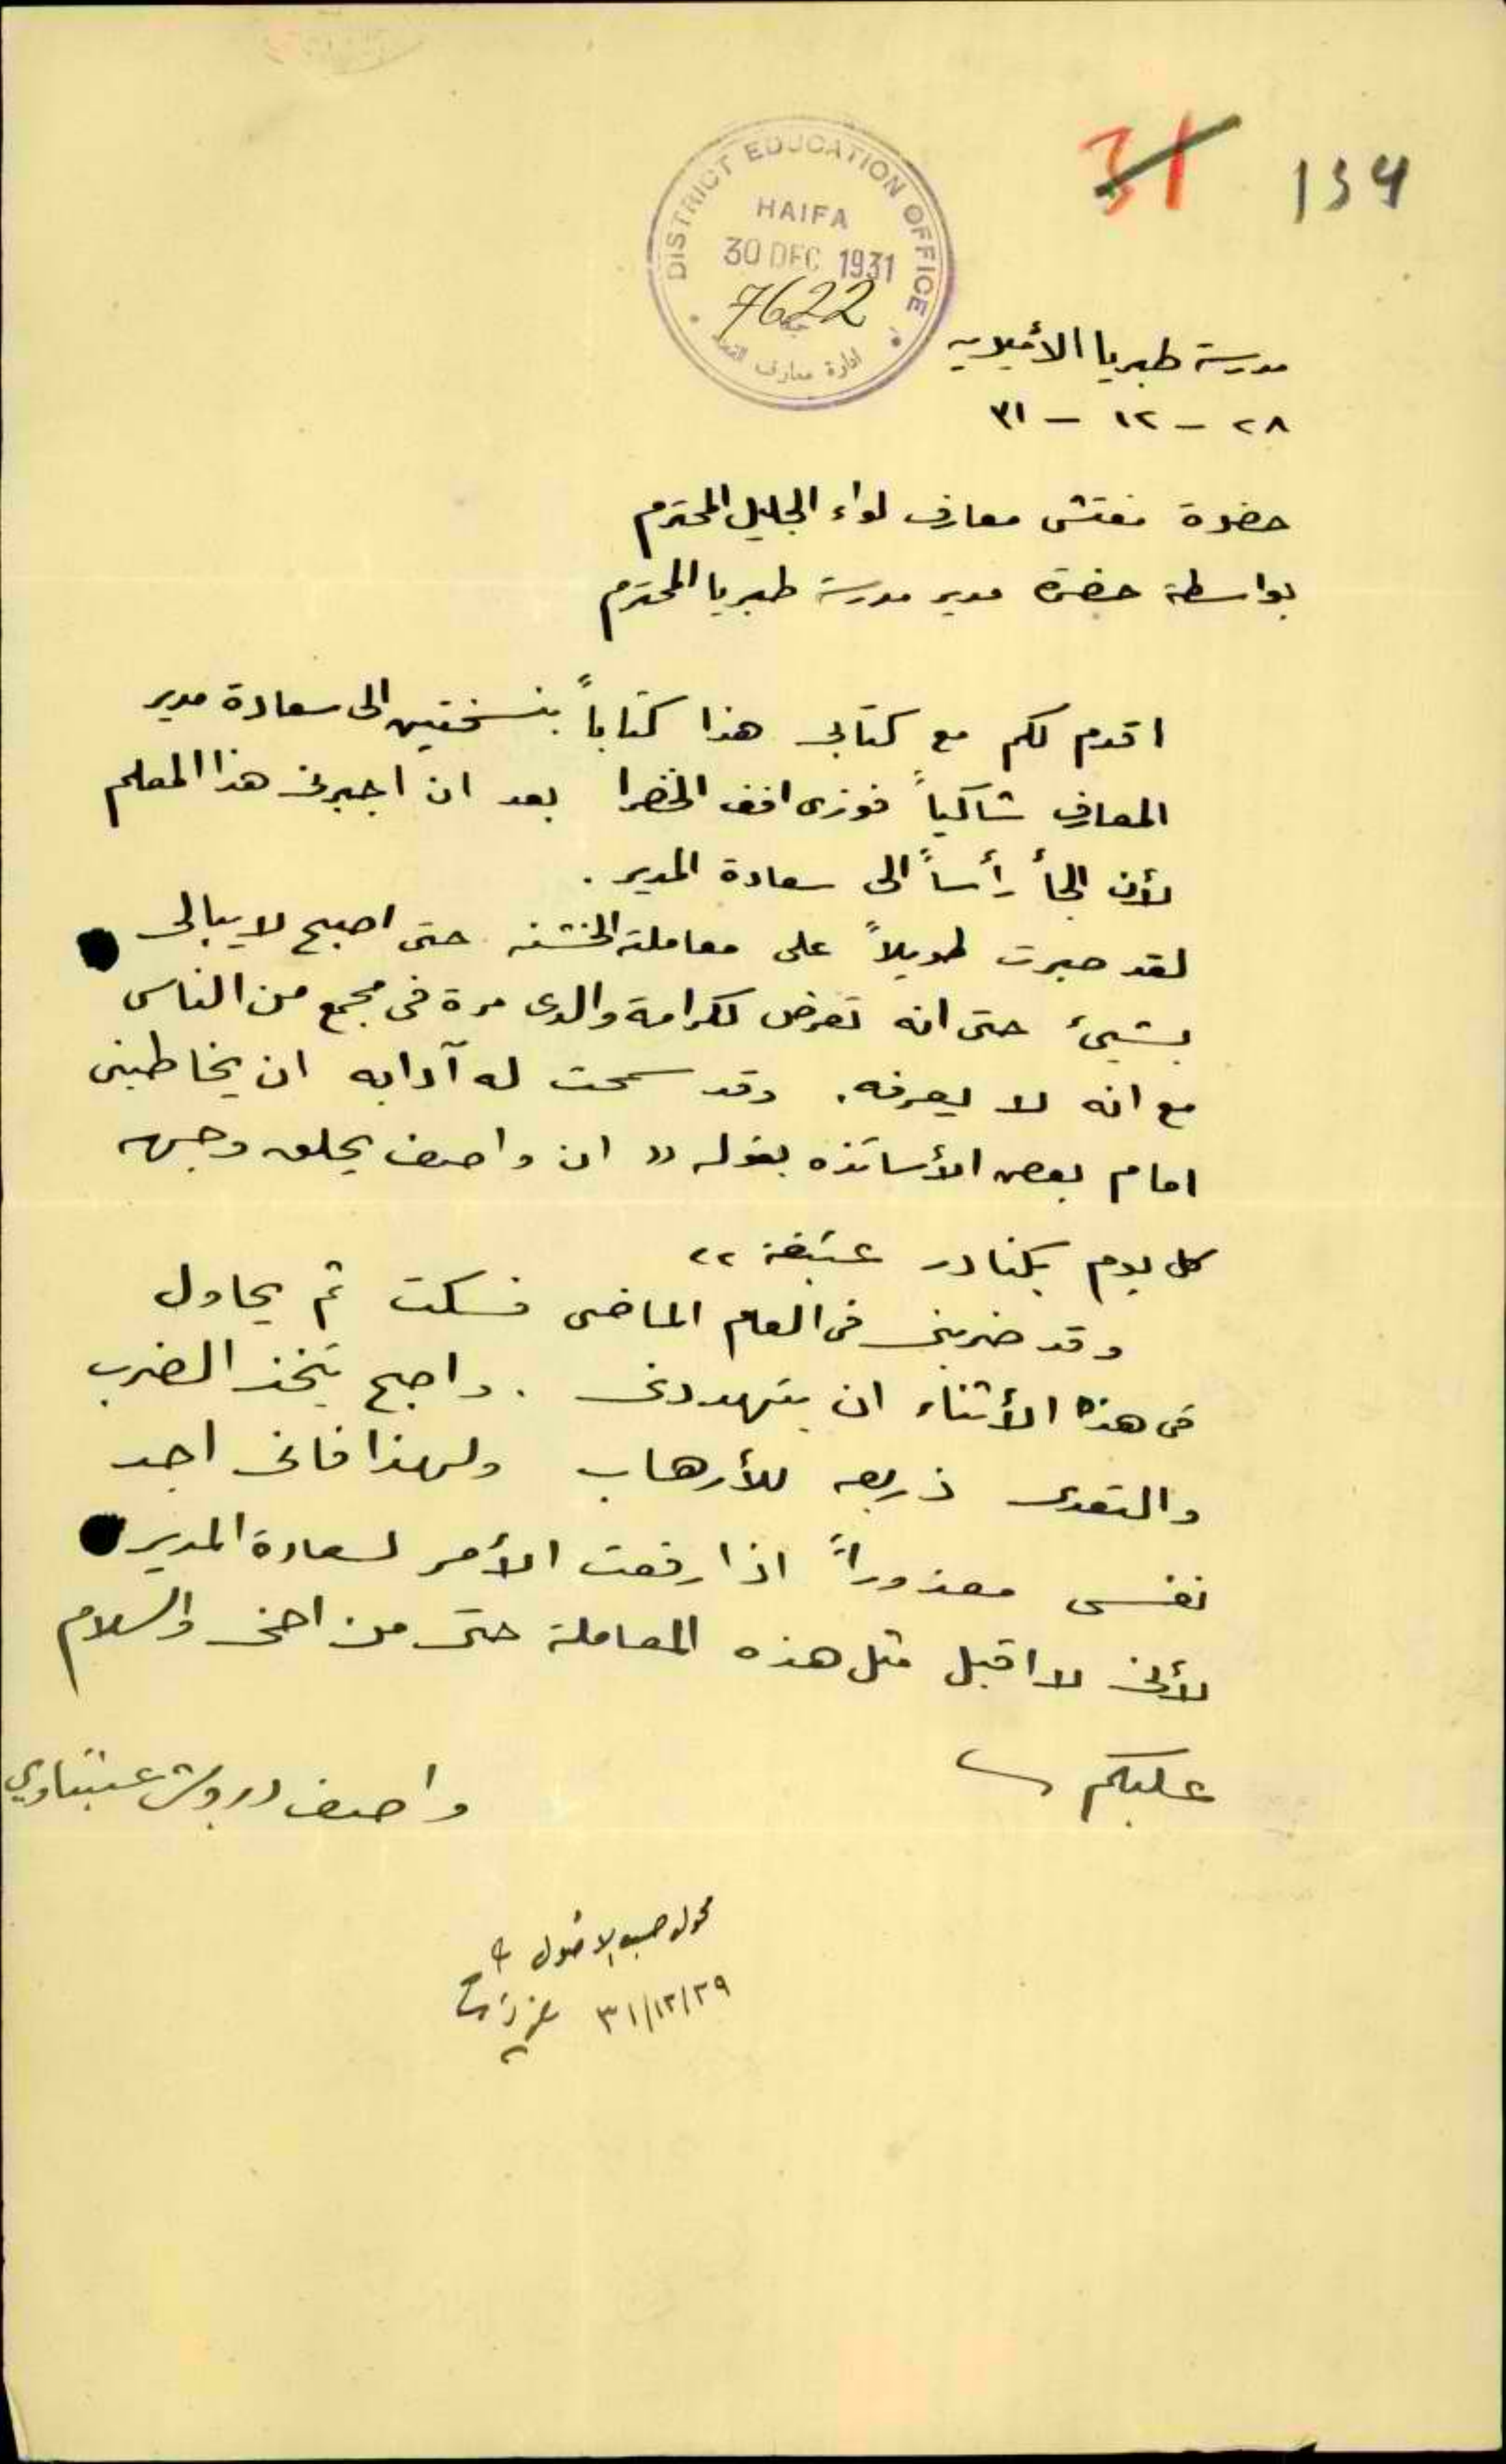 31 134
DISTRICT EDUCATION OFFICE
HAIFA
30 DEC 1931
7622
ادارة معارف
مدرسة طبريا الأميرية
٢٨ - ١٢ - ٣١
حضرة مفتش معارف لواء الجليل المحترم
بواسطة حضرة مدير مدرسة طبريا المحترم
اقدم لكم مع كتابي هذا كتاباً بنسختين الى سعادة مدير
المعارف شاكياً فوزي افند الخضرا بعد ان اجبرني هذا المعلم
لأن الجأ رأساً الى سعادة المدير .
لقد صبرت طويلاً على معاملته الخشنه حتى اصبح لا يبالي
بشيئ حتى انه تعرض لكرامة والدي مرة في مجمع من الناس
مع انه لا يعرفه . وقد سمحت له آدابه ان يخاطبني
امام بعض الأساتذه بقوله " ان واصف يحلق وجهه
كل يوم بكنادر عتيقة "
وقد ضربني في العام الماضي فسكت ثم يحاول
في هذه الأثناء ان يتهددني . واصبح يتخذ الضرب
والتعدي ذريعه للأرهاب ولهذا فاني اجد
نفسي معذوراً اذا رفعت الأمر لسعادة المدير
لأني لا اقبل مثل هذه المعاملة حتى من اخي والسلام
عليكم
واصف درويش عبنتاوي
محول حسب الاصول
٣١/١٢/٢٩